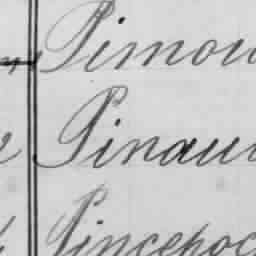 Pimou
Pinau
Pincepoc